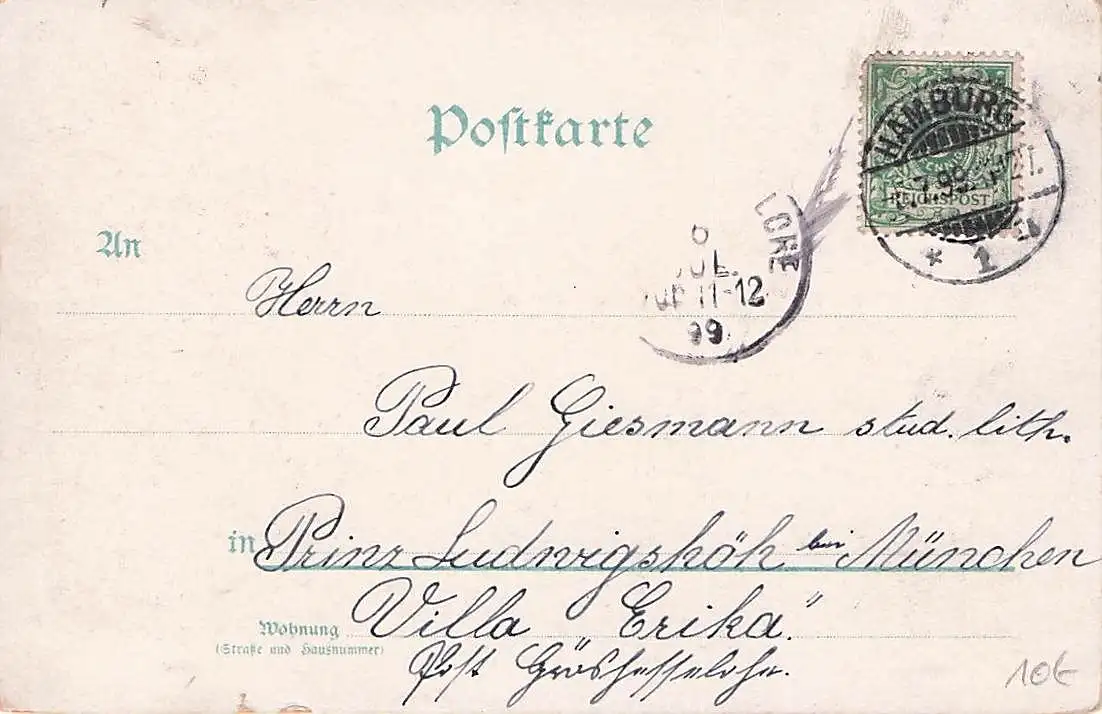 Postkarte
HAMBURG
PFENNIG
REICHSPOST
* 1
LOHE
JUL.
11-12
99
An
Herrn
Paul Giesmann stud. lith.
in Prinz Ludwigshöh bei München
Wohnung Villa „Erika."
(Straße und Hausnummer)
Post Grosshesselohe.
10€